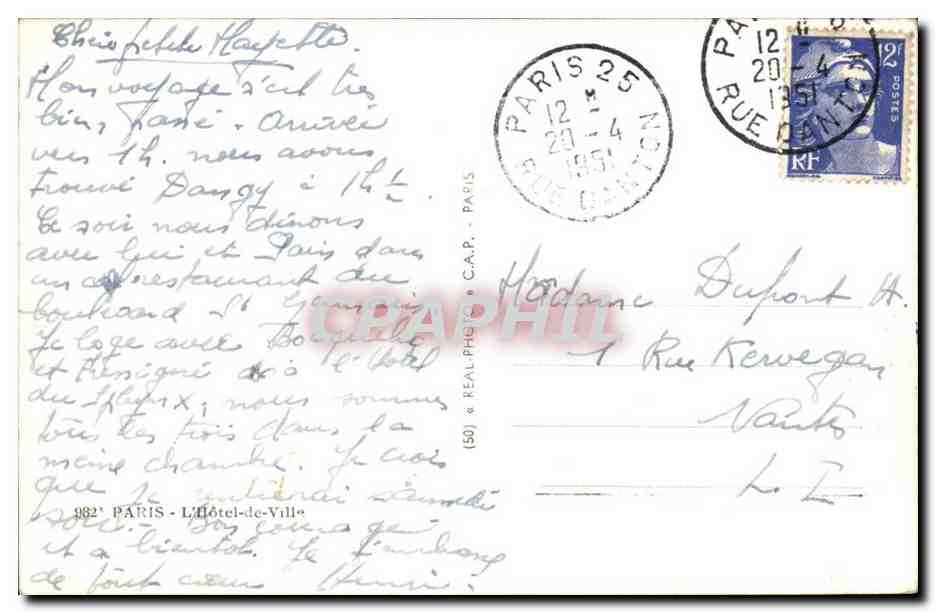 Chère petite Mayette.
Mon voyage s'est très
bien passé - Arrivée
vers 1h. nous avons
trouvé Dangy à 1h ½.
Ce soir nous dînons
avec lui et dans
un restaurant du
boulevard St Germain,
Je loge avec
et à l'Hôtel
du Sphynx, nous sommes
tous les trois dans la
même chambre. Je crois
que je rentrerai samedi
soir. - Bon courage
et a bientot. Je t'embrasse
de tout cœur Henri.
982* PARIS - L'Hôtel-de-Ville
(50) « REAL-PHOTO » C.A.P. - PARIS
PARIS 25
12 H
20 - 4
1951
RUE DANTON
PARIS 25
12 H
20 - 4
1951
RUE DANTON
12F
POSTES
RF
Madame Dupont H.
1 Rue Kervegan
Nantes
L. I
CPAPHIL